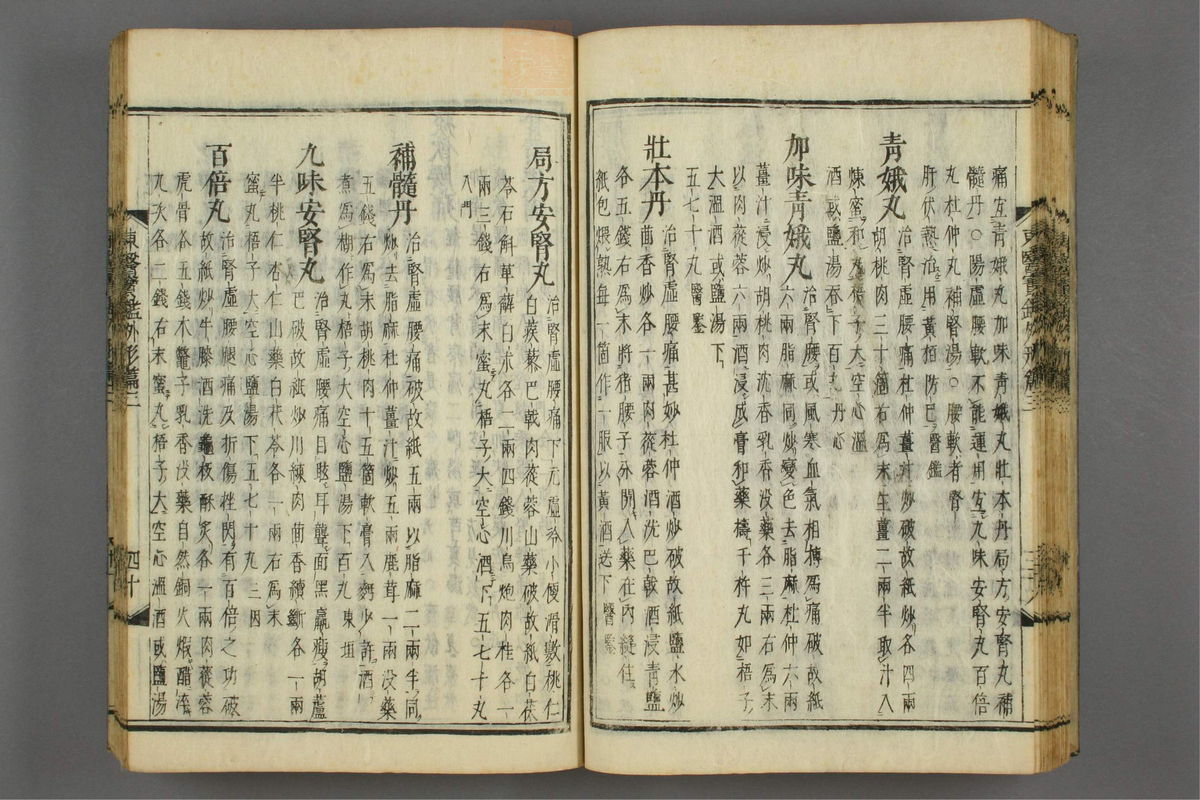 痛宜青娥丸加味青娥丸壯本丹局方安腎丸補
髓丹○陽虛腰軟不能運用宜九味安腎丸百倍
丸杜仲丸補腎湯○腰軟者腎
肝伏熱治用黃栢防己醫鑑
青娥丸
治腎虛腰痛杜仲薑汁炒破故紙炒各四兩
胡桃肉三十箇右爲末生薑二兩半取汁入
煉蜜和丸梧子大空心溫
酒或鹽湯呑下百丸丹心
加味青娥丸
治腎腰或風寒血氣相搏爲痛破故紙
六兩脂麻同炒變色去脂麻杜仲六兩
薑汁浸炒胡桃肉沈香乳香沒藥各三兩右爲末
以肉蓯蓉六兩酒浸成膏和藥擣千杵丸如梧子
大溫酒或鹽湯下
五七十丸醫鑒
壯本丹
治腎虛腰痛甚妙杜仲酒炒破故紙鹽水炒
茴香炒各一兩肉蓯蓉酒洗巴戟酒浸青鹽
各五錢右爲末將猪腰子分開入藥在內縫住
紙包煨熟每一箇作一服以黃酒送下醫鑒
局方安腎丸
治腎虛腰痛下元虛冷小便滑數桃仁
白蒺藜巴戟肉蓯蓉山藥破故紙白茯
苓石斛萆薢白朮各二兩四錢川烏炮肉桂各一
兩三錢右爲末蜜丸梧子大空心酒下五七十丸
入門
補髓丹
治腎虛腰痛破故紙五兩以脂麻二兩半同
炒去脂麻杜仲薑汁炒五兩鹿茸一兩沒藥
五錢右爲末胡桃肉十五箇軟膏入麪少許酒
煮爲糊作丸梧子大空心鹽湯下百丸東垣
九味安腎丸
治腎虛腰痛目眩耳聾面黑羸瘦胡蘆
巴破故紙炒川練肉茴香續斷各一兩
半桃仁杏仁山藥白茯苓各一兩右爲末
蜜丸梧子大空心鹽湯下五七十丸三因
百倍丸
治腎虛腰腿痛及折傷挫閃有百倍之功破
故紙炒牛膝酒洗龜板酥炙各一兩肉蓯蓉
虎骨各五錢木鼈子乳香沒藥自然銅火煆醋淬
九次各二錢右末蜜丸梧子大空心溫酒或鹽湯
東醫寶鑑外形篇三
四十